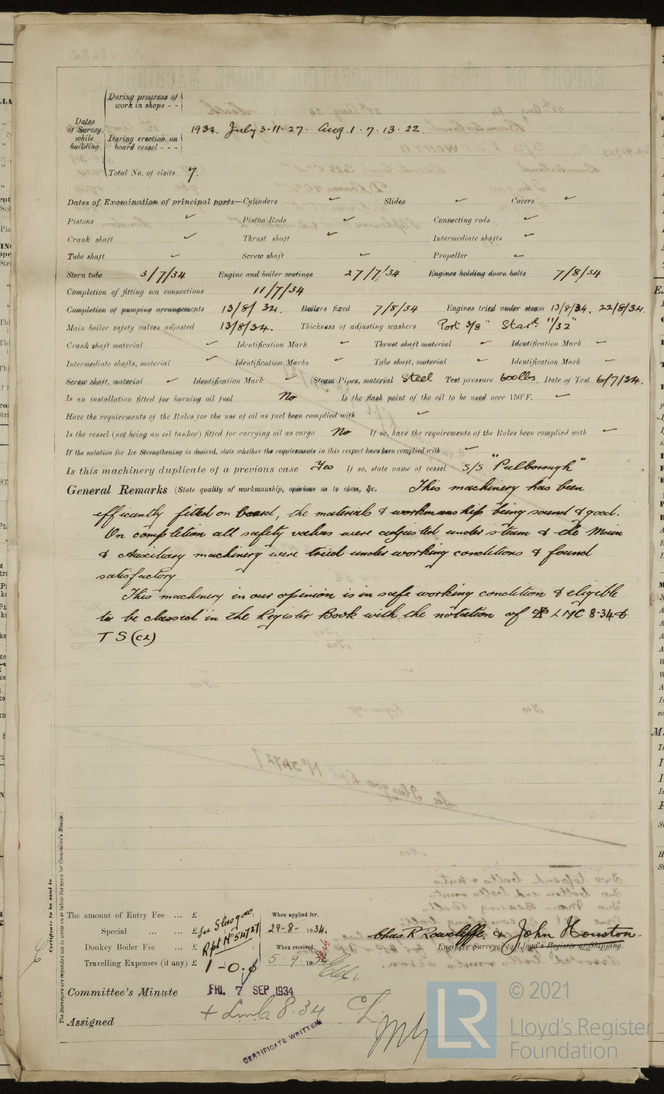 During progress of work in shops - -
Dates of Survey while building
1934. July 3-11-27. Aug. 1. 7. 13. 22.
During erection on board vessel - - -
Total No. of visits 7.
Dates of Examination of principal parts—Cylinders ✓ Slides ✓ Covers ✓
Pistons ✓ Piston Rods ✓ Connecting rods ✓
Crank shaft ✓ Thrust shaft ✓ Intermediate shafts ✓
Tube shaft ✓ Screw shaft ✓ Propeller ✓
Stern tube 3/7/34 Engine and boiler seatings 27/7/34 Engines holding down bolts 7/8/34
Completion of fitting sea connections 11/7/34
Completion of pumping arrangements 13/8/34. Boilers fixed 7/8/34 Engines tried under steam 13/8/34. 22/8/34.
Main boiler safety valves adjusted 13/8/34. Thickness of adjusting washers Port 3/8" Starbd 11/32"
Crank shaft material ✓ Identification Mark ✓ Thrust shaft material ✓ Identification Mark ✓
Intermediate shafts, material ✓ Identification Marks ✓ Tube shaft, material ✓ Identification Mark ✓
Screw shaft, material ✓ Identification Mark ✓ Steam Pipes, material Steel Test pressure 600lbs. Date of Test 6/7/34.
Is an installation fitted for burning oil fuel No Is the flash point of the oil to be used over 150°F. ✓
Have the requirements of the Rules for the use of oil as fuel been complied with ✓
Is the vessel (not being an oil tanker) fitted for carrying oil as cargo No If so, have the requirements of the Rules been complied with ✓
If the notation for Ice Strengthening is desired, state whether the requirements in this respect have been complied with ✓
Is this machinery duplicate of a previous case Yes If so, state name of vessel S/S "Pulborough"
General Remarks (State quality of workmanship, opinions as to class, &c. This machinery has been
efficiently fitted on board, the materials & workmanship being sound & good.
On completion all safety valves were adjusted under steam & the Main
& Auxiliary machinery were tried under working conditions & found
satisfactory
This machinery in our opinion is in safe working condition & eligible
to be classed in the Register Book with the notation of ✠ LMC 8-34 &
T S (CL)
Certificate to be sent to
The Surveyors are requested not to write on or below the space for Committee's Minute.
The amount of Entry Fee ... £ See Glasgow When applied for,
Special ... ... £ Rpt No 54727 29-8-1934.
Donkey Boiler Fee ... £ When received,
Travelling Expenses (if any) £ 1-0.6 5-9
Chas R Rowcliffe & John Houston.
Engineer Surveyor to Lloyd's Register of Shipping.
Committee's Minute FRI. 7 SEP 1934
Assigned + Lmc 8.34 CL
CERTIFICATE WRITTEN
LR
© 2021
Lloyd's Register
Foundation